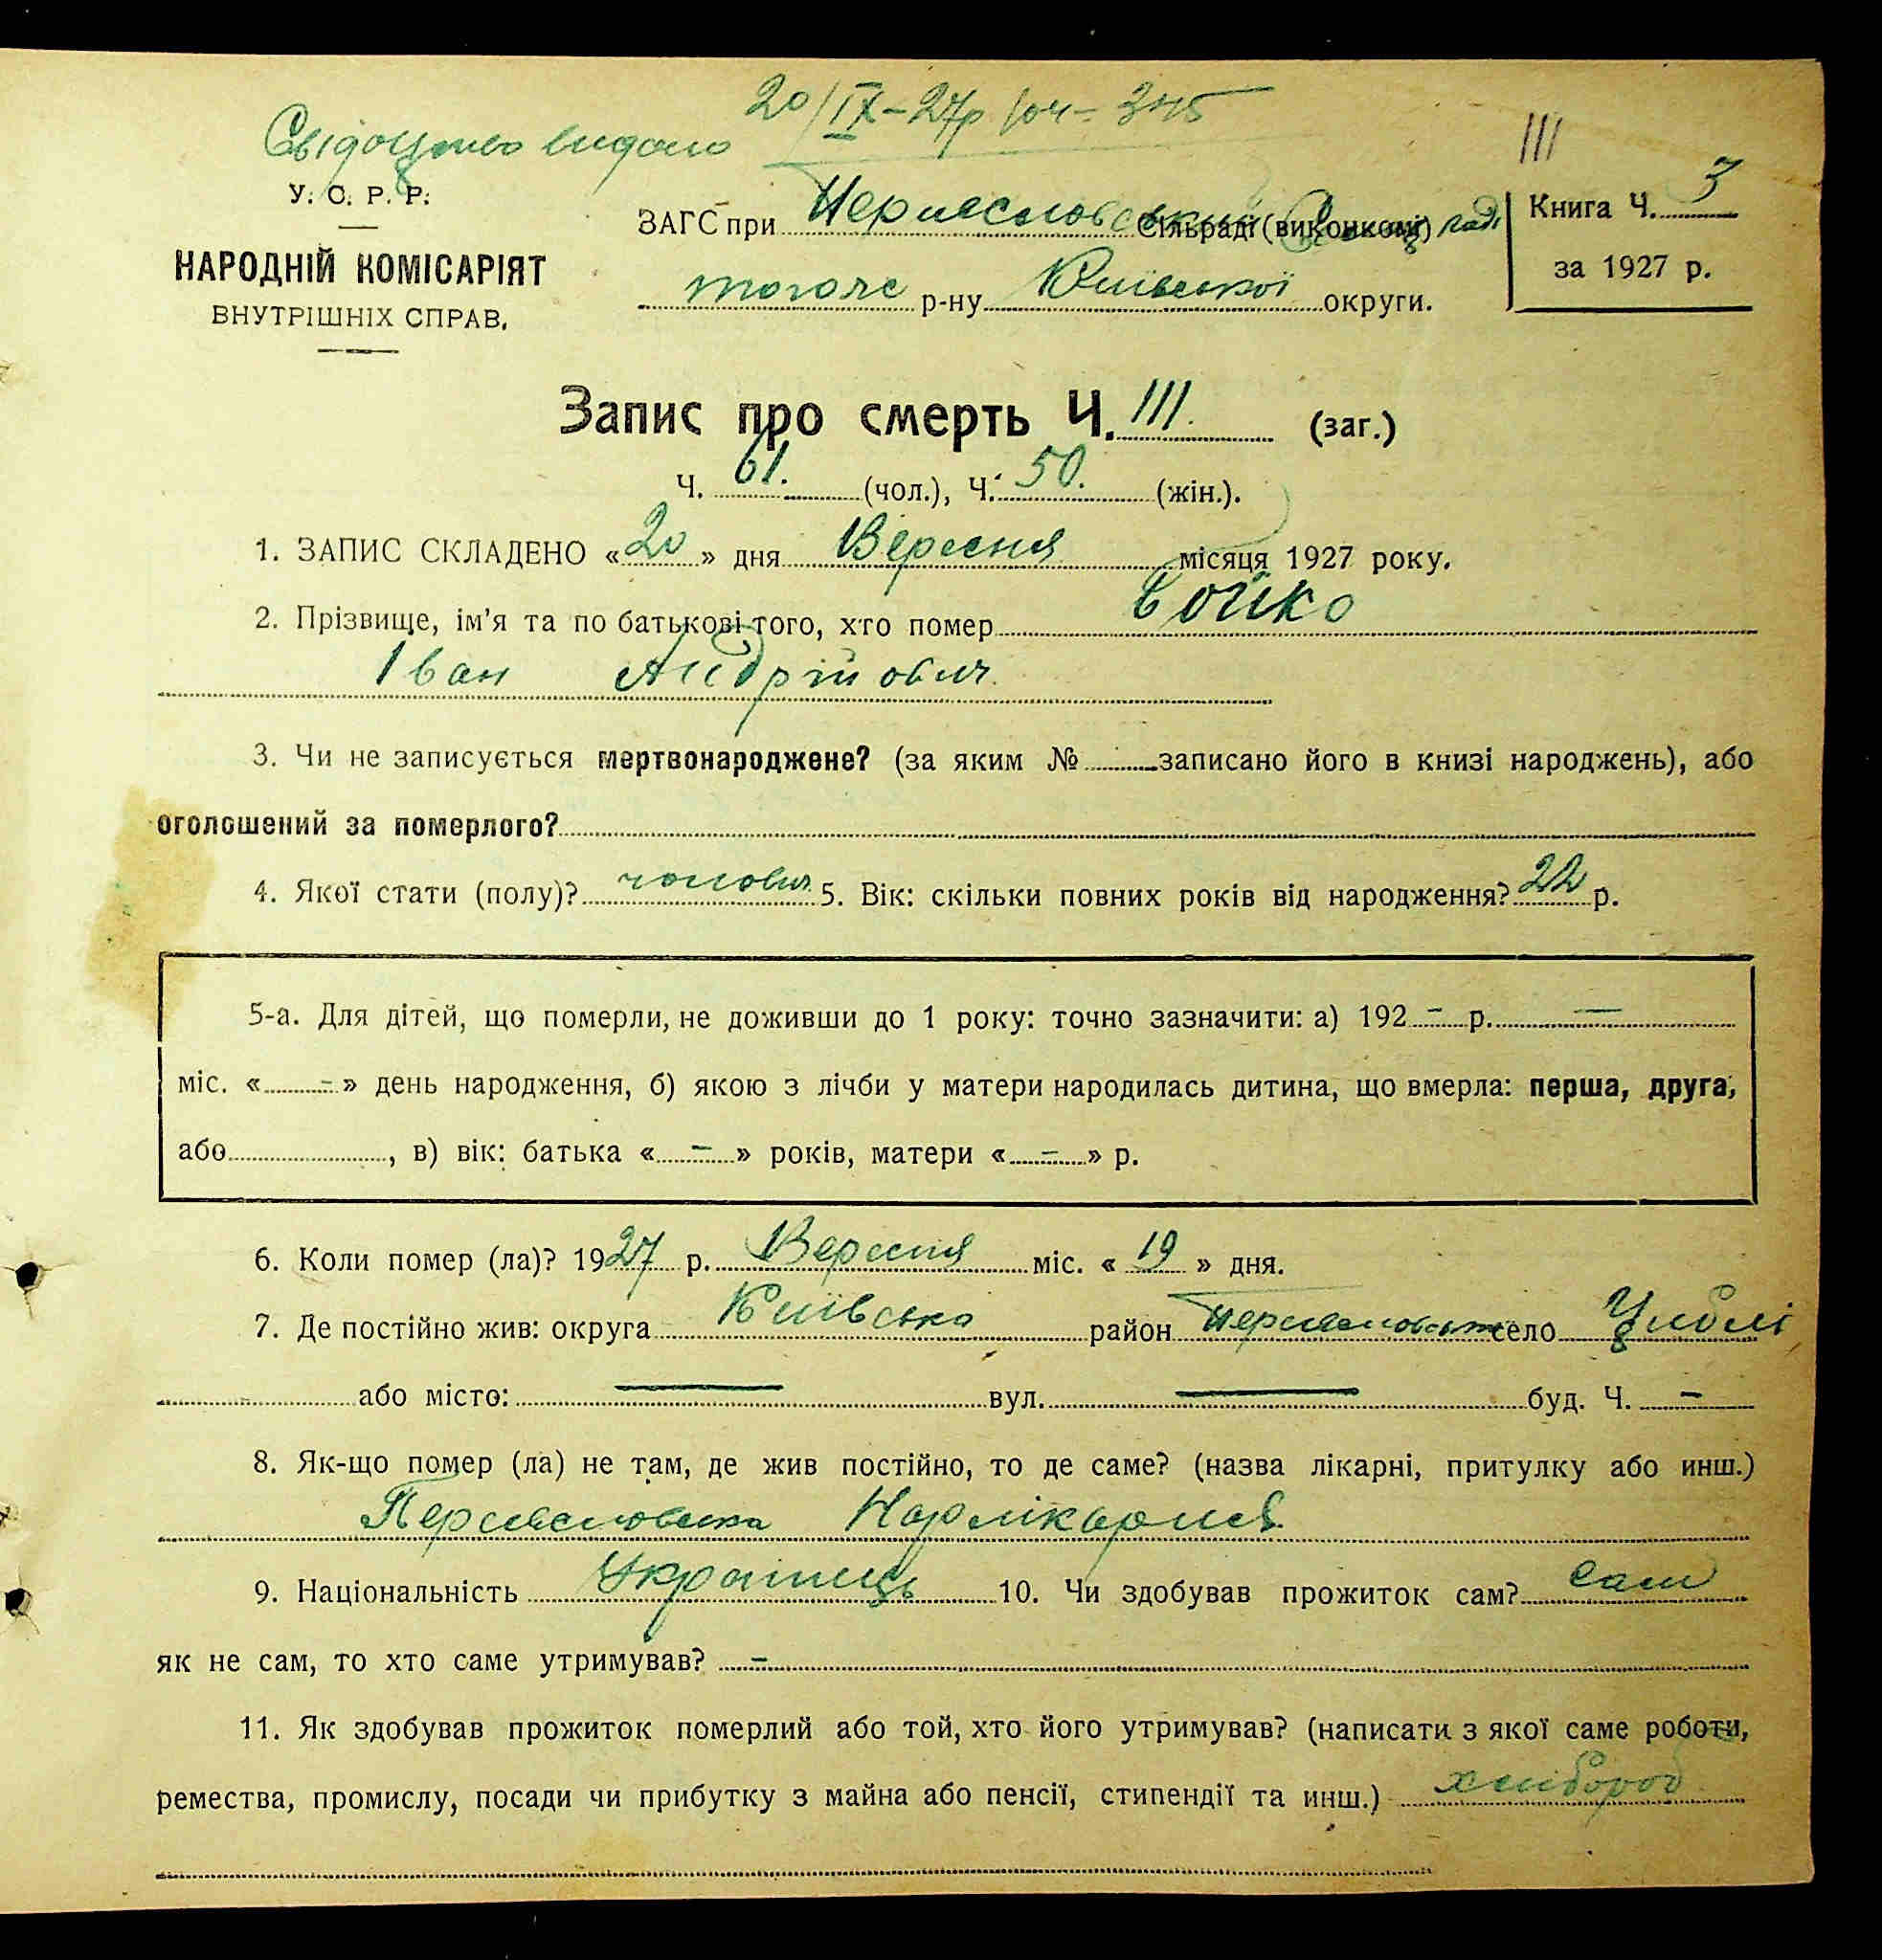 20/IX–27р
Свідоцтво видано
111
У. С. Р. Р.
НАРОДНІЙ КОМІСАРІЯТ
ВНУТРІШНІХ СПРАВ.
ЗАГС при Переяславській Сільраді (виконкомі)
того ж р-ну Київської округи.
Книга Ч. 3
за 1927 р.
Запис про смерть Ч. 111. (заг.)
Ч. 61. (чол.), Ч. 50. (жін.).
1. ЗАПИС СКЛАДЕНО «20» дня Вересня місяця 1927 року.
2. Прізвище, ім'я та по батькові того, хто помер Бойко
Іван Андрійович
3. Чи не записується мертвонароджене? (за яким № записано його в книзі народжень), або
оголошений за померлого?
4. Якої стати (полу)? чолович. 5. Вік: скільки повних років від народження? 22 р.
5-а. Для дітей, що померли, не доживши до 1 року: точно зазначити: а) 192 – р. —
міс. « – » день народження, б) якою з лічби у матери народилась дитина, що вмерла: перша, друга,
або , в) вік: батька « – » років, матери « – » р.
6. Коли помер (ла)? 1927 р. Вересня міс. « 19 » дня.
7. Де постійно жив: округа Київська район Переяславськ село Циблі
або місто: — вул. — буд. Ч. –
8. Як-що помер (ла) не там, де жив постійно, то де саме? (назва лікарні, притулку або инш.)
Переяславська Нарлікарня
9. Національність Українець 10. Чи здобував прожиток сам? сам
як не сам, то хто саме утримував? –
11. Як здобував прожиток померлий або той, хто його утримував? (написати з якої саме роботи,
ремества, промислу, посади чи прибутку з майна або пенсії, стипендії та инш.) хлібороб